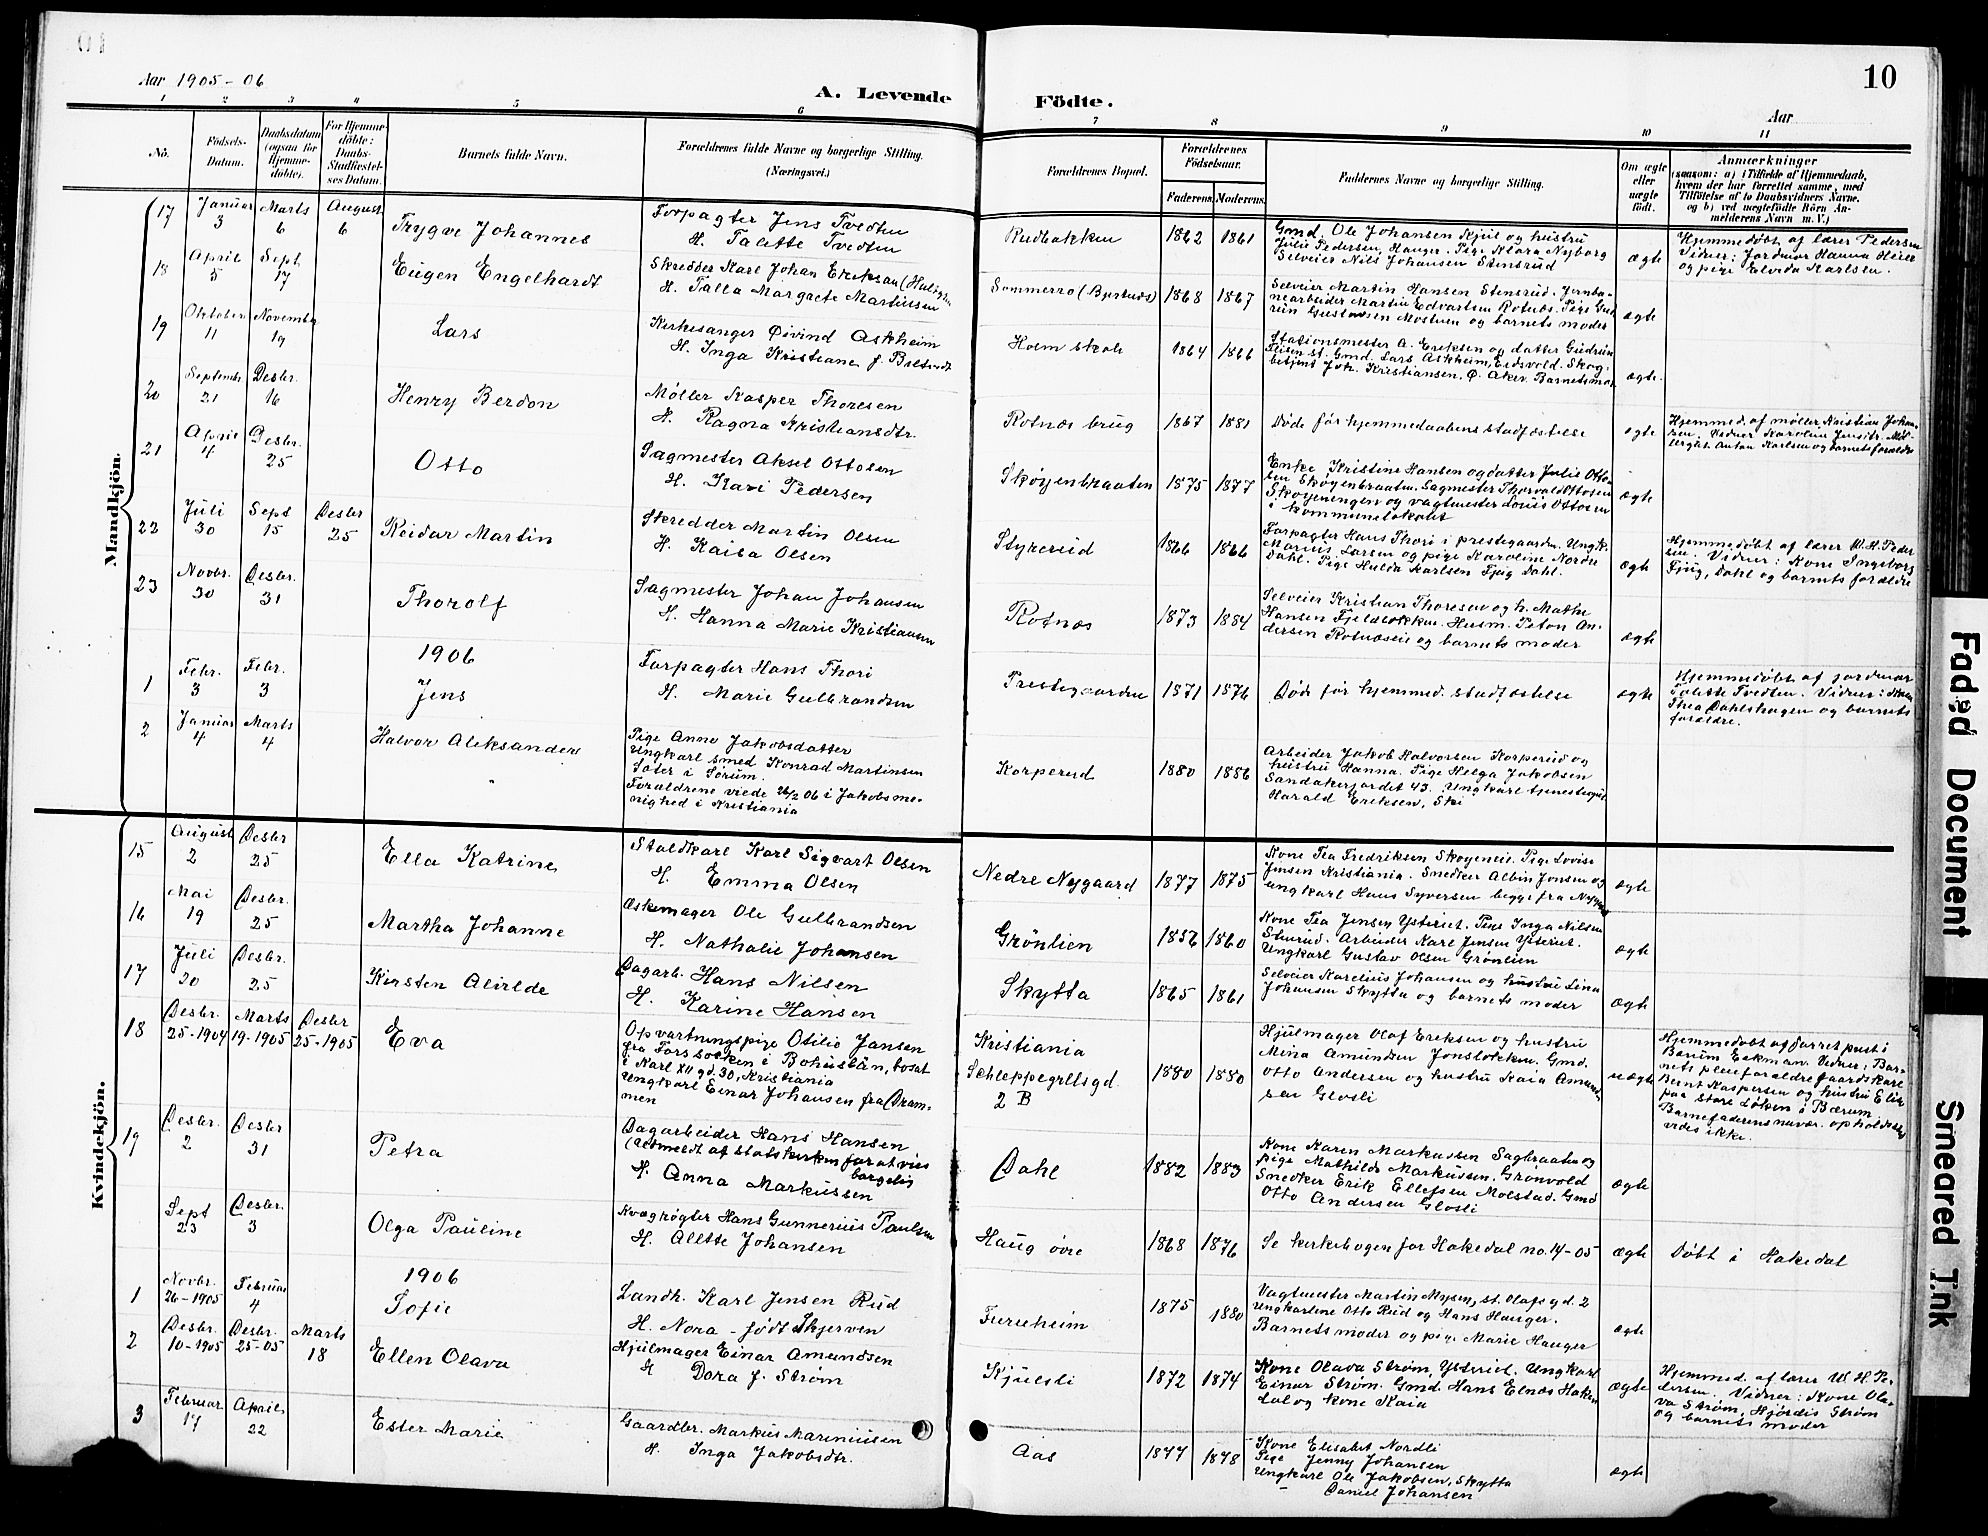 Aar 1905-06
A. Levende
Födte.
Aar
10
1 2 3 4 5 6 7 8 9 10 11
No.
Födsels-
Datum.
Daabsdatum
(ogsaa for
Hjemme-
döbte).
For Hjemme-
döbte:
Daabs-
Stadfæstel-
ses Datum.
Barnets fulde Navn.
Forældrenes fulde Navne og borgerlige Stilling.
(Næringsvei.)
Forældrenes Bopæl.
Forældrenes
Födselsaar.
Faderens. Moderens.
Faddernes Navne og borgerlige Stilling.
Om ægte
eller
uægte
födt.
Anmærkninger
(saasom: a) i Tilfælde af Hjemmedaab,
hvem der har forrettet samme, med
Tilföielse af to Daabsvidners Navne.
og b) ved uægtefödte Börn An-
melderens Navn m. V.)
Mandkjön.
17 Januar 3 Marts 6 August 6
Trygve Johannes
Forpagter Jens Tvedten
H. Talette Tvedten
Rudbakken 1862 1861
Gmd. Ole Johansen Kjul og hustru
Julie Pedersen, Hauger. Pige Klara Nyborg
Selveier Nils Johansen Stensrud
ægte
Hjemmedøbt af lærer Pedersen
Vidner: Jordmor Hanna Heier
og pige Elvida Karlsen.
18 April 5 Sept 17
Eugen Engelhardt
Skredder Karl Johan Eriksen
H. Talla Margrete Martinsen
Sommerro 1868 1867
Selveier Martin Hansen Stensrud. Jernba-
nearbeider Martin Edvartsen Rotnæs. Pige Gud-
run Gustavsen Mostuen og barnets moder
ægte
19 Oktober 11 November 19
Lars
Kirkesanger Øivind Askheim
H. Inga Kristiane f. Bretvedt
Holm skole 1864 1866
Stationsmester A. Eriksen og datter Gudrun
Flisen st. Gmd. Lars Askheim, Eidsvold. Skog-
betjent Joh. Kristiansen, Ø. Aker. Barnets mor
ægte.
20 September 21 Desbr. 16
Henry Berdon
Møller Kasper Thoresen
H. Ragna Kristiansdtr.
Rotnæs brug 1867 1881
Døde før hjemmedaabens stadfæstelse
ægte
Hjemmed. af møller Kristian Johan-
sen. Vidner Karoline Jensdtr. Møl-
lergut Anton Karlsen og barnets forældre
21 April 4 Desbr. 25
Otto
Sagmester Aksel Ottosen
H. Kari Pedersen
Skøyenbraaten 1875 1877
Enke Kristine Hansen og datter Julie Otto-
sen Skøyenbraaten. Sagmester Thorvald Ottosen
Skøyenengen og vagtmester Louis Ottosen
i kommunelokalet
ægte
22 Juli 30 Sept 15 Desbr 25
Reidar Martin
Skredder Martin Olsen
H. Kaisa Olsen
Styrerud 1866 1866
Forpagter Hans Thori i prestegaarden. Ungk.
Marius Larsen og pige Karoline Nordre
Dahl. Pige Hulda Karlsen Fjug Dahl.
ægte
Hjemmedøbt af lærer W. H. Peder
sen. Vidner: Kone Ingeborg
Fjug, Dahl og barnets forældre
23 Novbr. 30 Desbr. 31
Thorolf
Sagmester Johan Johansen
H. Hanna Marie Kristiansen
Rotnæs 1873 1884
Selveier Kristian Thoresen og h. Mathe
Hansen Fjeldløkken. Husm. Peton An-
dersen Rotnæseie og barnets moder
ægte
1906
1 Febr. 3 Febr. 3
Jens
Forpagter Hans Thori
H. Marie Gulbrandsen
Prestegaarden 1871 1876
Døde før hjemmed. stadfæstelse
ægte
Hjemmedøbt af jordmor
Talette Tvedten. Vidner: Kone
Thea Dahlshagen og barnets
forældre.
2 Januar 4 Marts 4
Halvor Aleksander
Pige Anne Jakobsdatter
Ungkarl smed Konrad Martinsen
Sæter i Sørum.
Forældrene viede 26/2 06 i Jakobsme-
nighed i Kristiania
Korperud 1880 1886
Arbeider Jakob Halvorsen Korperud og
hustru Hanna. Pige Helga Jakobsen
Sandakerjordet 43. Ungkarl tjenestegut
Harald Eriksen, Ski
Kvindekjön.
15 August 2 Desbr 25
Ella Katrine
Staldkarl Karl Sigvart Olsen
H. Emma Olsen
Nedre Nygaard 1877 1875
Kone Tea Fredriksen Skøyeneie. Pige Lovise
Jensen Kristiania. Snedker Albin Jensen og
ungkarl Hans Syversen begge fra Nygaard
ægte
16 Mai 19 Desbr. 25
Martha Johanne
Æskemager Ole Gulbrandsen
H. Nathalie Johansen
Grönlien 1856 1860
Kone Tea Jensen Ysteriet. Pige Inga Nilsen
Stusrud. Arbeider Karl Jensen Ysteriet.
Ungkarl Gustav Olsen Grønlien
ægte
17 Juli 20 Desbr. 25
Kirsten Alvilde
Dagarb. Hans Nilsen
H. Karine Hansen
Skytta 1865 1861
Selveier Karelius Johansen og hustru Lina
Johansen Skytta og barnets moder
ægte
18 Desbr. 25-1904 Marts 19-1905 Desbr 25-1905
Eva
Opvartningspige Otilie Jansen
fra Forssocken i Bohuslän, bosat
i Karl XII gd. 30, Kristiania
Ungkarl Einar Johansen fra Dram-
men
Kristiania
Schleppegrellsgd.
2 B
1880 1880
Hjulmager Olaf Eriksen og hustru
Mina Amundsen Jonsløkken. Gmd.
Otto Andersen og hustru Kaia Amund-
sen Glosli
uægte
Hjemmedøbt af forret. pr­est i
Bærum Eckman. Vidner; Bar-
nets pleieforældre gaardskarl
Bernt Kaspersen og hustru Elise
paa store Løken i Bærum.
Barnefaderens nuvær. opholdssted
vides ikke.
19 Desbr. 2 Desbr 31
Petra
Dagarbeider Hans Hansen
(Udmeldt af statskirken for at vies
borgelig
H. Anna Markussen
Dahl 1882 1883
Kone Karen Markussen Sagbraaten og
pige Mathilde Markussen. Grønvold
Snedker Erik Ellefsen Molstad. Gmd
Otto Andersen Glosli
ægte
Sept 23 Desbr. 3
Olga Pauline
Kvægrøgter Hans Gunnerius Paulsen
H. Alette Johansen
Haug øvre 1868 1876
Se kirkebogen for Hakedal no. 14-05
ægte
Døbt i Hakedal
1906
1 Novbr. 26-1905 Februar 4
Sofie
Landh. Karl Jensen Rud
H. Nora - født Skjerven
Furuheim 1875 1880
Vagtmester Martin Mysen, st. Olafs gd. 2
Ungkarlene Otto Rud og Hans Hauger.
Barnets moder og pige Marie Hauger
ægte
2 Desbr. 10-1905 Desbr. 25-05 Marts 18
Ellen Olava
Hjulmager Einar Amundsen
H Dora f. Strøm
Kjulsli 1872 1874
Kone Olava Strøm, Ysteriet. Ungkarl
Einar Strøm. Gmd. Hans Elnæs Hake
dal og kone Kaia
ægte
Hjemmed. af lærer W. H. Pe-
dersen. Vidner: Kone Ola-
va Strøm, Hjördis Strøm
og barnets moder
3 Februar 17 April 22
Ester Marie
Gaardbr. Markus Mariniusen
H. Inga Jakobsdtr.
Aas 1877 1878
Kone Elisabet Nordli
Pige Jenny Johansen
Ungkarl Ole Jakobsen, Skytta
- Daniel Johansen
ægte
Faded Document
Smeared Ink